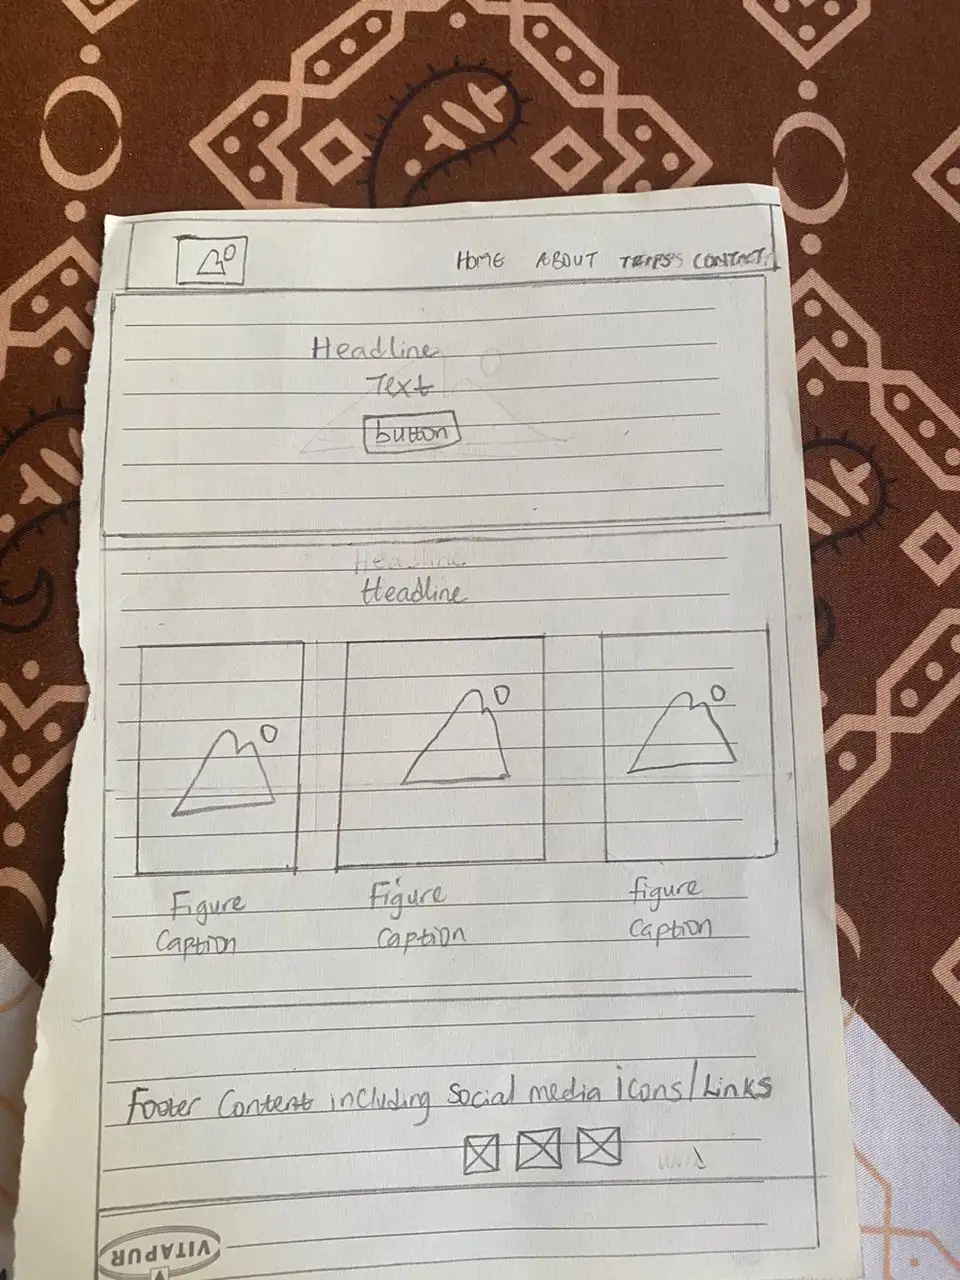 HOME ABOUT TRIPS CONTACT
Headline
Text
button
Headline
Headline
Figure Figure figure
Caption Caption Caption
Footer Content including Social media icons/Links
VITAPUR